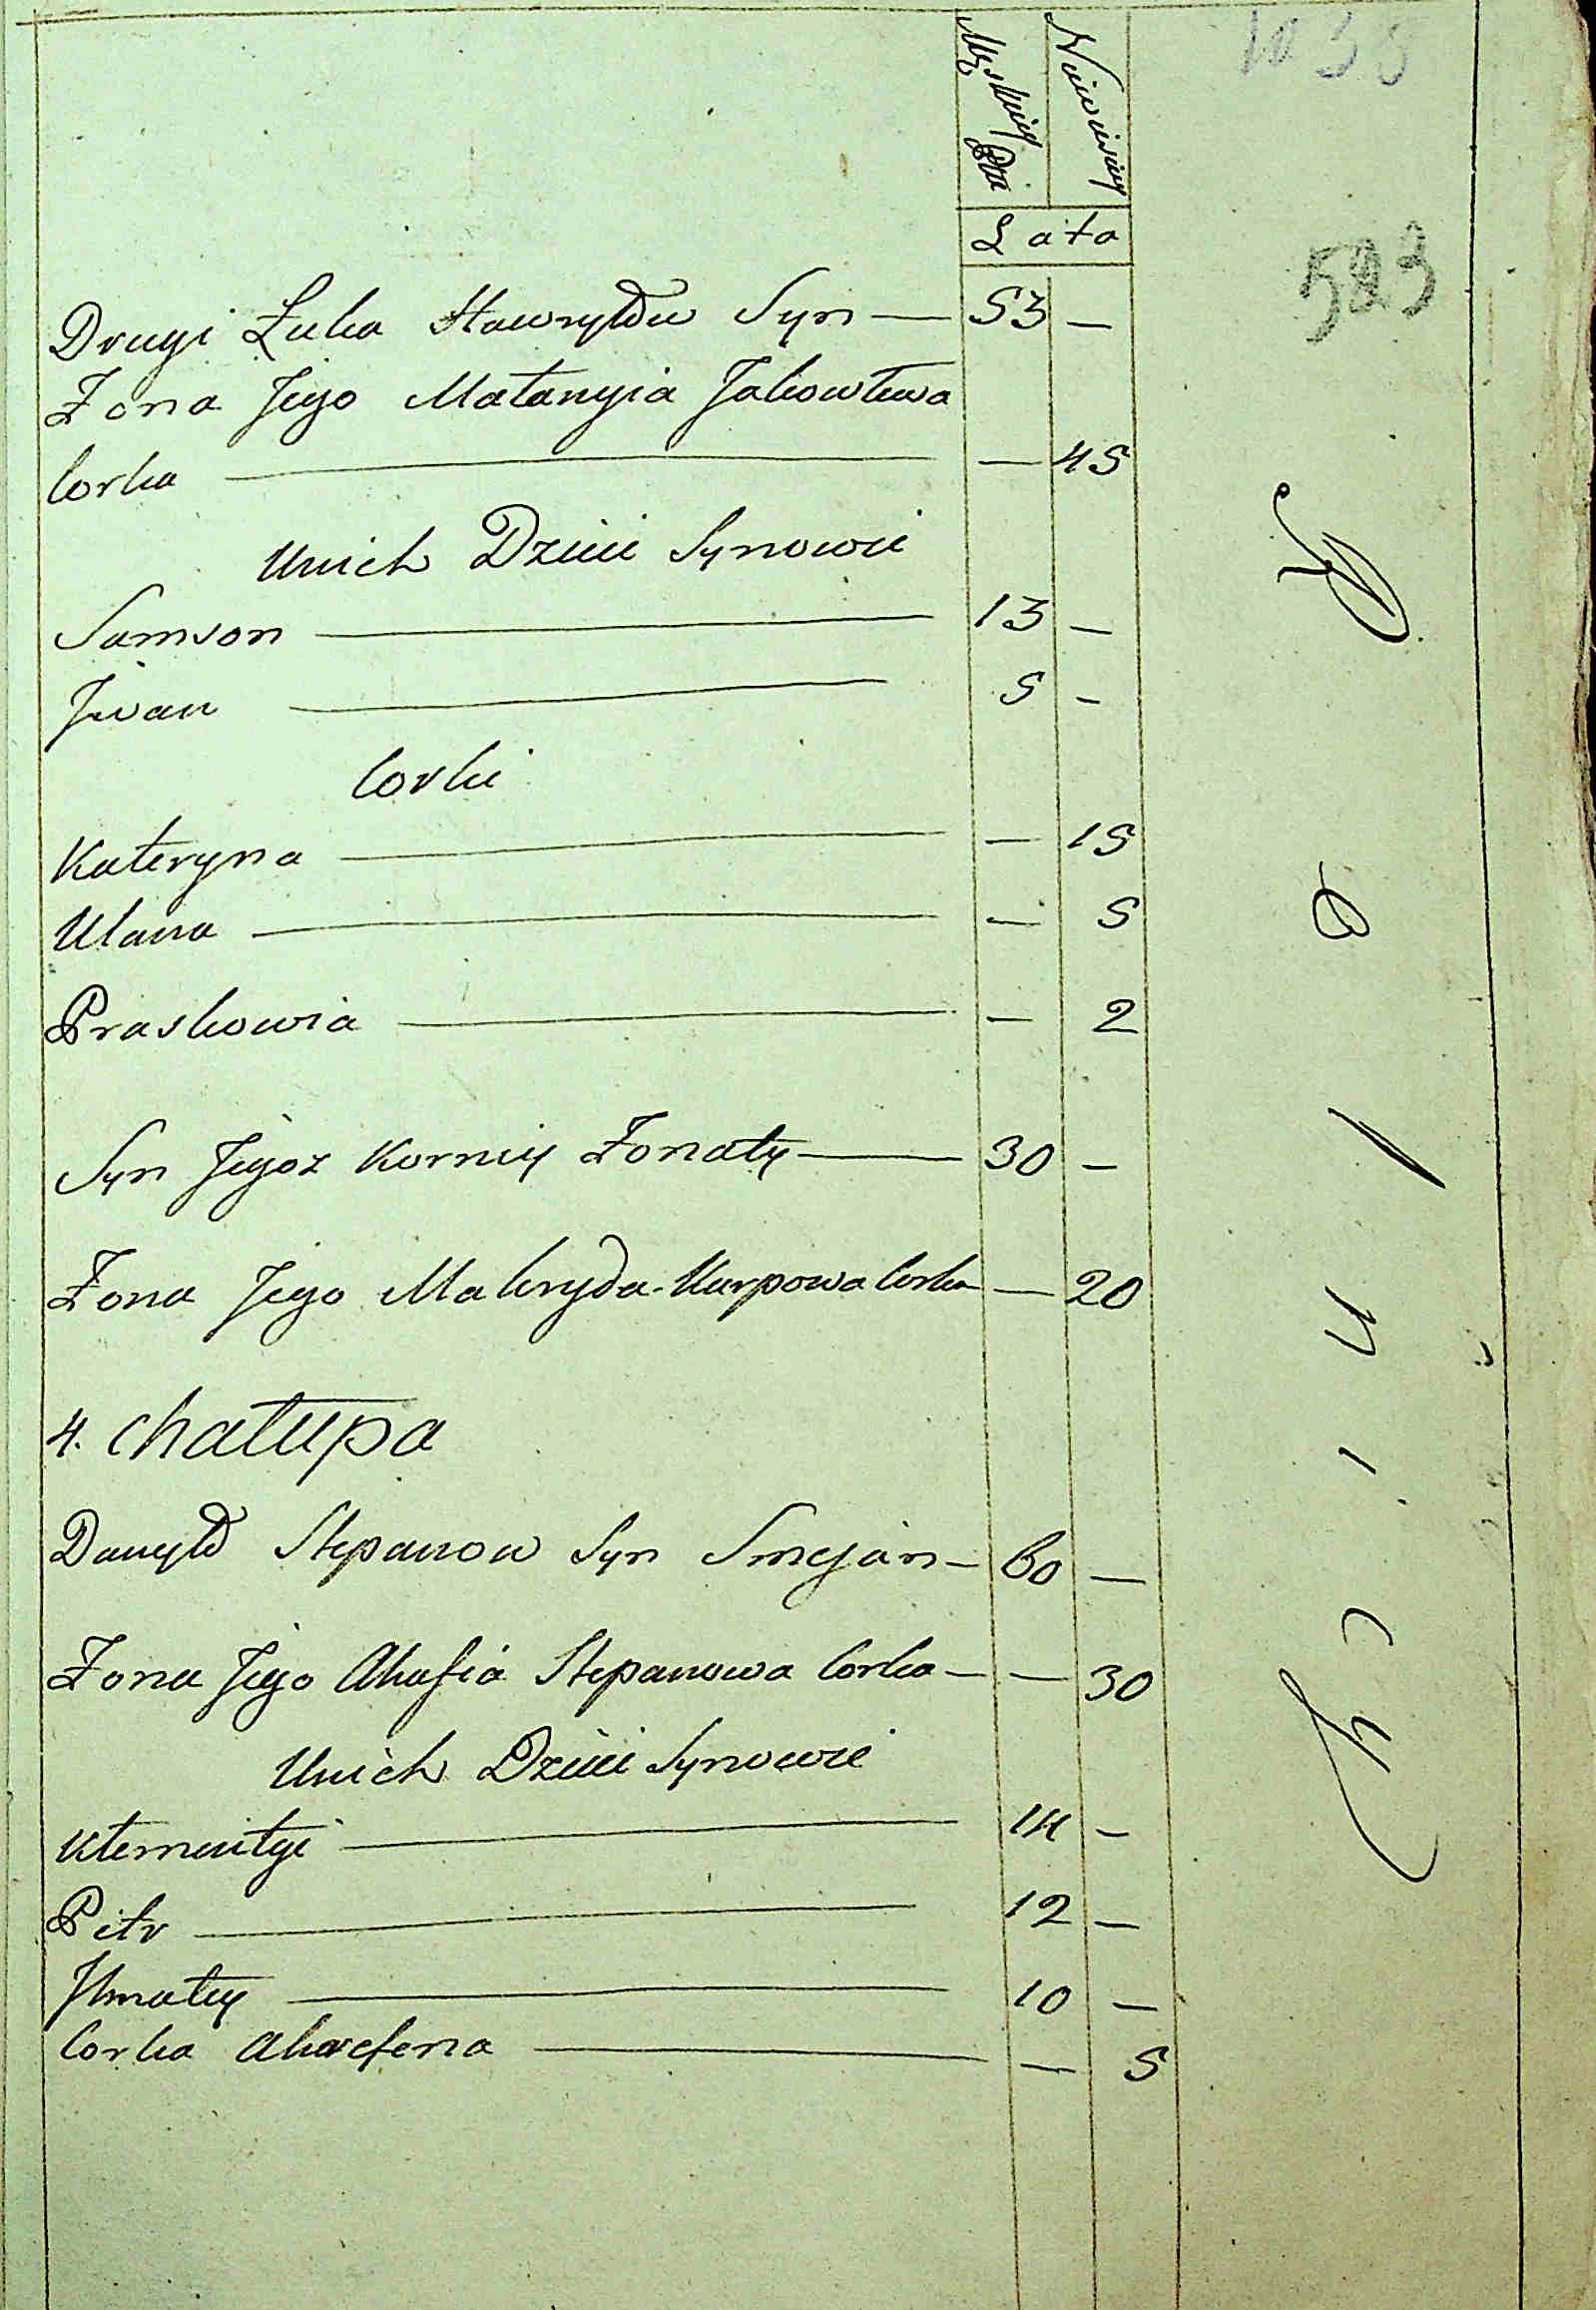 Męskiey Płci
Niewiesciey
1035
Lata
523
Drugi Łuka Hawryłow Syn — 53 —
Żona Jego Małanyia Jakowlewa
Corka — — 45
Unich Dzieci Synowie
Samson — 13 —
Jwan — 5 —
Corki
Kateryna — — 15
Ulana — — 5
Praskowia — — 2
Syn Jegoz Korniy Żonaty — 30 —
Żona Jego Makryda Karpowa Corka — 20
4. Chałupa
Danyło Stepanow Syn — 60 —
Żona Jego Ahafia Stepanowa Corka — — 30
Unich Dzieci Synowie
Klementyi — 14 —
Petr — 12 —
Jhnatiy — 10 —
Corka — — 5